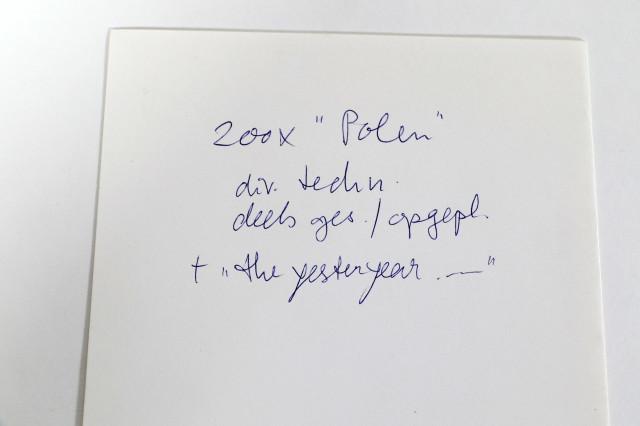 200x "Polen"
div. techn.
deels ges. / opgepl.
+ "the yesteryear .—"